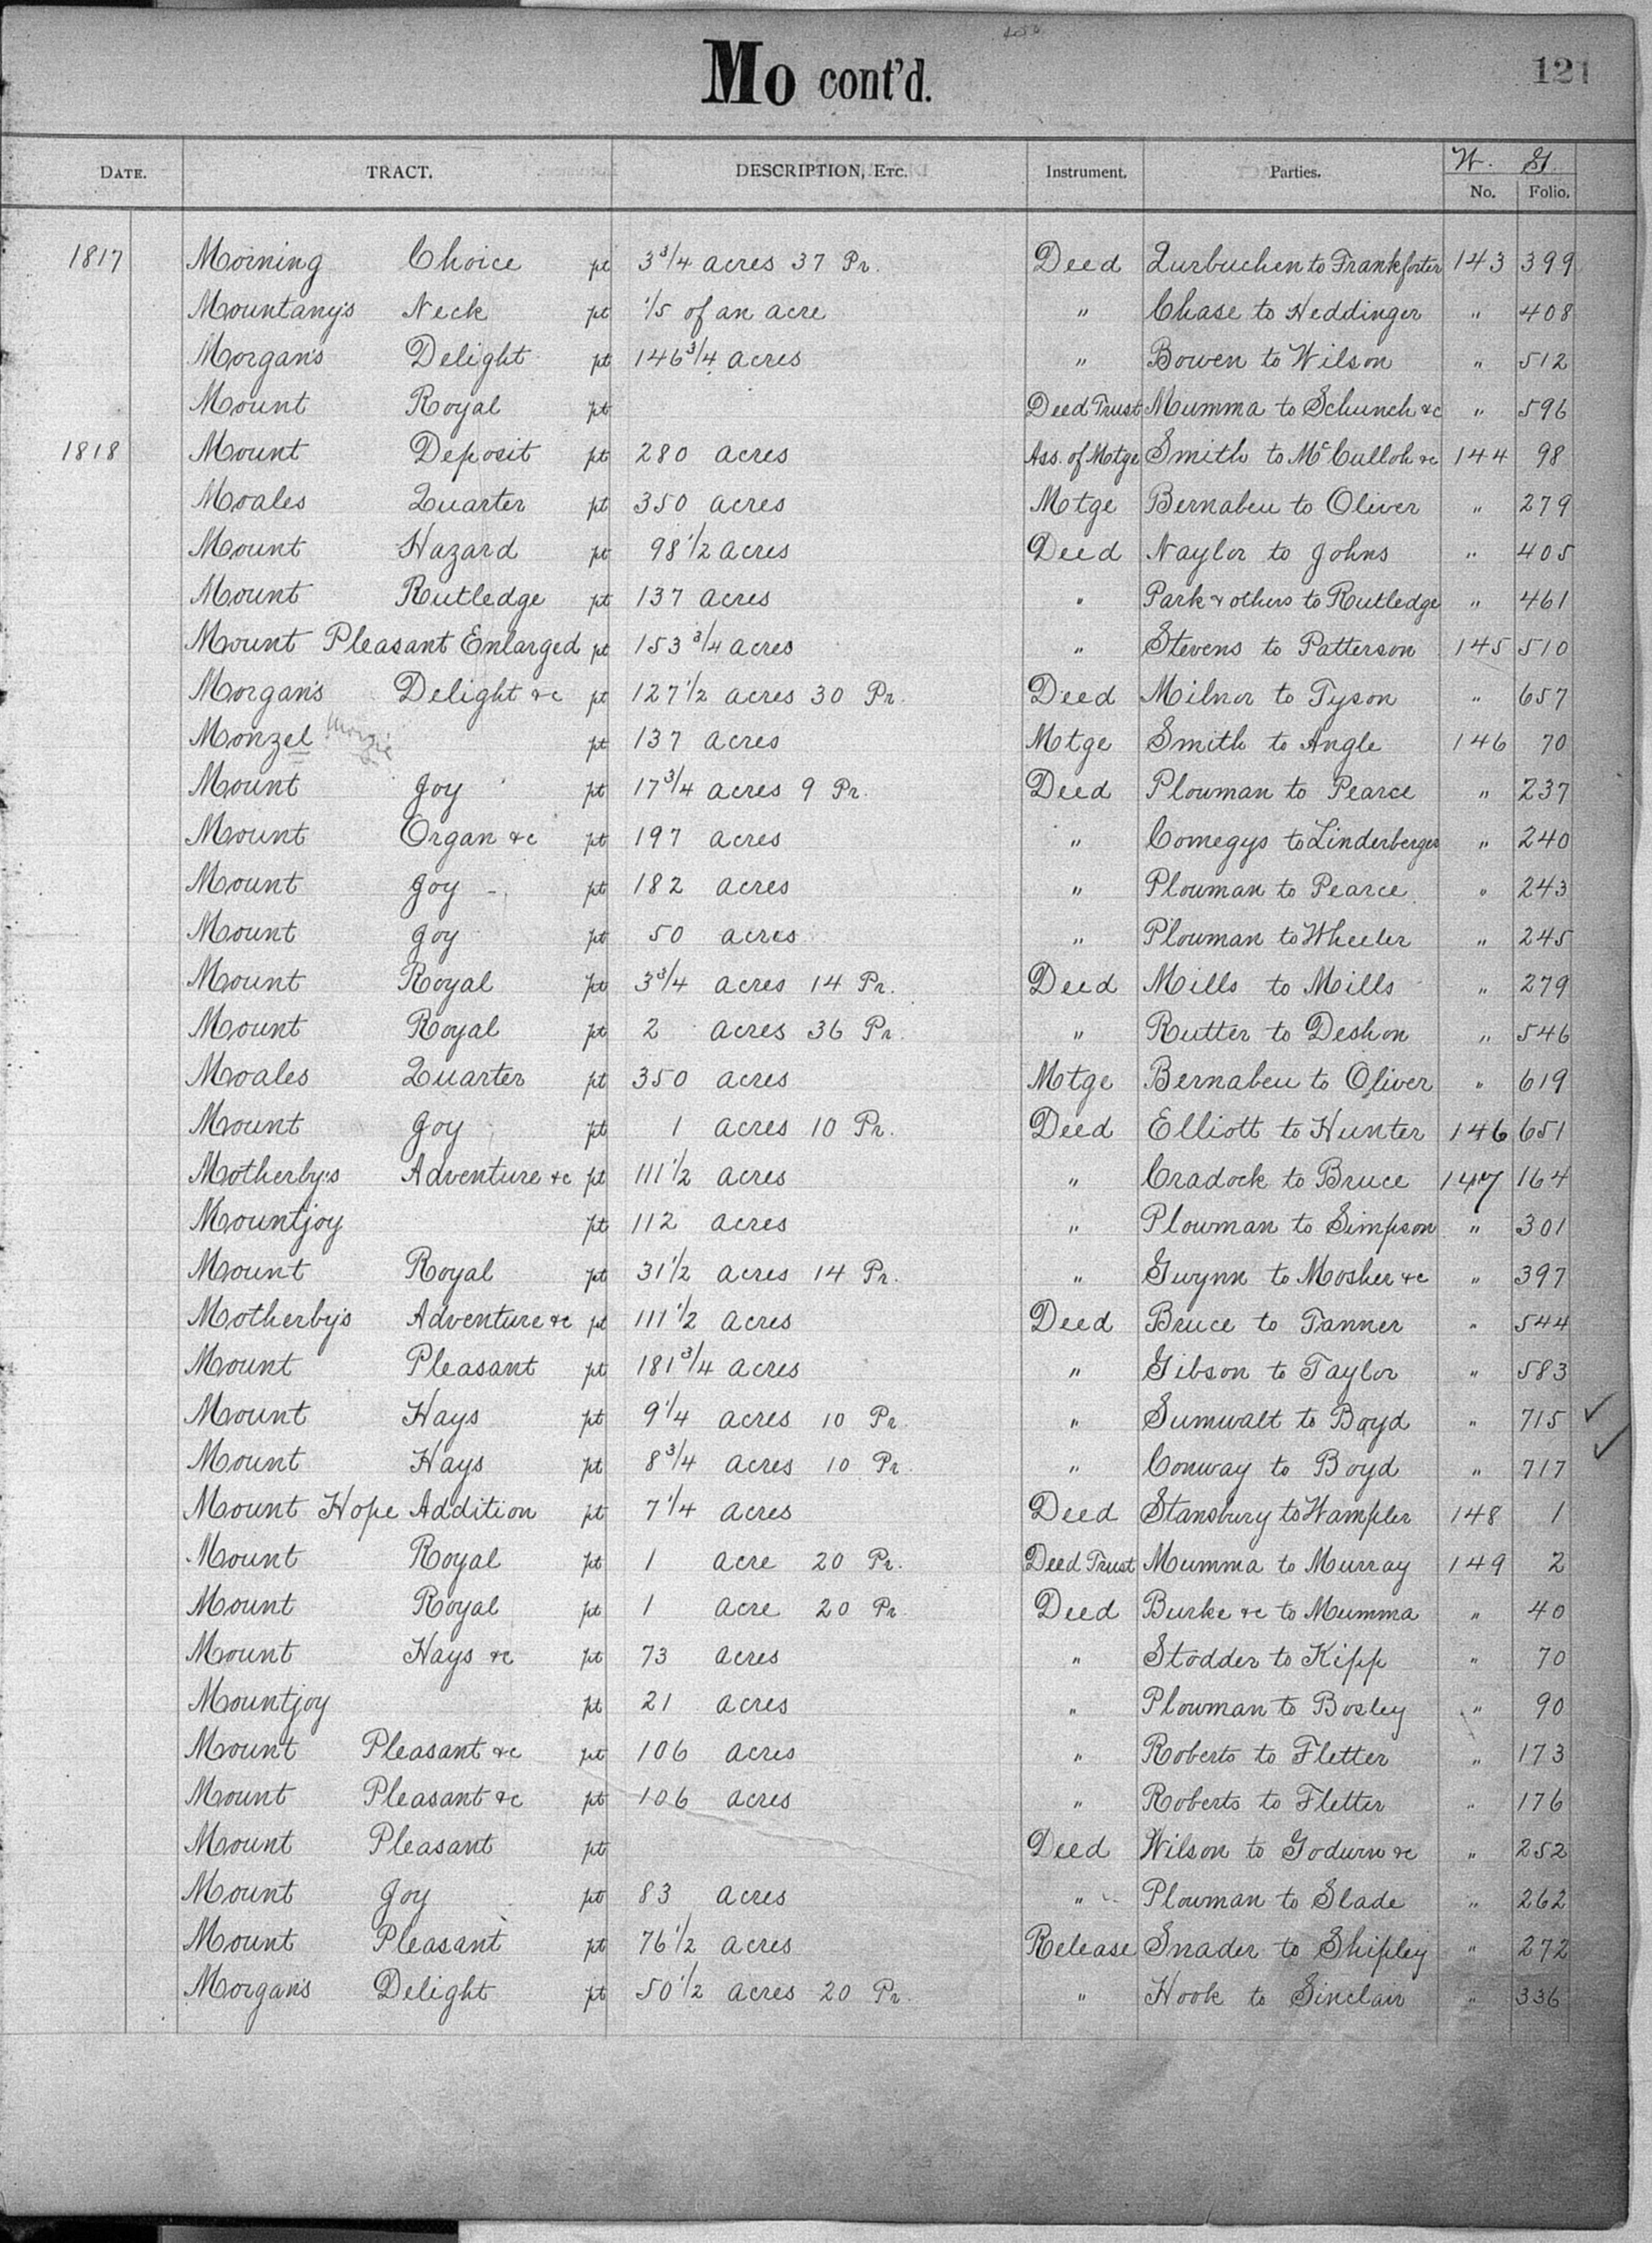 Mo cont'd.
121
DATE. TRACT. DESCRIPTION, ETC. Instrument. Parties. W. G.
No. Folio.
1817 Morning Choice pt 3 3/4 acres 37 Pr. Deed Zurbuchen to Frankforter 143 399
Mountany's Neck pt 1/5 of an acre " Chase to Heddinger " 408
Morgan's Delight pt 146 3/4 acres " Bowen to Wilson " 512
Mount Royal pt Deed Trust Mumma to Schunch &c " 596
1818 Mount Deposit pt 280 acres Ass. of Motge Smith to McCulloh &c 144 98
Moales Quarter pt 350 acres Motge Bernabeu to Oliver " 279
Mount Hazard pt 98 1/2 acres Deed Naylor to Johns " 405
Mount Rutledge pt 137 acres " Park & others to Rutledge " 461
Mount Pleasant Enlarged pt 153 3/4 acres " Stevens to Patterson 145 510
Morgan's Delight &c pt 127 1/2 acres 30 Pr. Deed Milnor to Tyson " 657
Monzel pt 137 acres Motge Smith to Angle 146 70
Mount Joy pt 17 3/4 acres 9 Pr. Deed Plowman to Pearce " 237
Mount Organ &c pt 197 acres " Comegys to Linderberger " 240
Mount Joy pt 182 acres " Plowman to Pearce " 243
Mount Joy pt 50 acres " Plowman to Wheeler " 245
Mount Royal pt 3 3/4 acres 14 Pr. Deed Mills to Mills " 279
Mount Royal pt 2 acres 36 Pr. " Rutter to Deshon " 546
Moales Quarter pt 350 acres Motge Bernabeu to Oliver " 619
Mount Joy pt 1 acres 10 Pr. Deed Elliott to Hunter 146 651
Motherby's Adventure &c pt 111 1/2 acres " Cradock to Bruce 147 164
Mountjoy pt 112 acres " Plowman to Simpson " 301
Mount Royal pt 31 1/2 acres 14 Pr. " Gwynn to Mosher &c " 397
Motherby's Adventure &c pt 111 1/2 acres Deed Bruce to Tanner " 544
Mount Pleasant pt 181 3/4 acres " Gibson to Taylor " 583
Mount Hays pt 9 1/4 acres 10 Pr " Sumwalt to Boyd " 715 ✓
Mount Hays pt 8 3/4 acres 10 Pr. " Conway to Boyd " 717 ✓
Mount Hope Addition pt 7 1/4 acres Deed Stansbury to Wampler 148 1
Mount Royal pt 1 acre 20 Pr. Deed Trust Mumma to Murray 149 2
Mount Royal pt 1 acre 20 Pr Deed Burke &c to Mumma " 40
Mount Hays &c pt 73 acres " Stodder to Kipp " 70
Mountjoy pt 21 acres " Plowman to Bosley " 90
Mount Pleasant &c pt 106 acres " Roberts to Fletter " 173
Mount Pleasant &c pt 106 acres " Roberts to Fletter " 176
Mount Pleasant pt Deed Wilson to Godwin &c " 252
Mount Joy pt 83 acres " Plowman to Slade " 262
Mount Pleasant pt 76 1/2 acres Release Snader to Shipley " 272
Morgan's Delight pt 50 1/2 acres 20 Pr. " Hook to Sinclair " 336